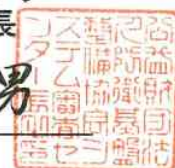 長
男
公益財団法
人防衛基盤
整備協会シ
ステム審査セ
ンター